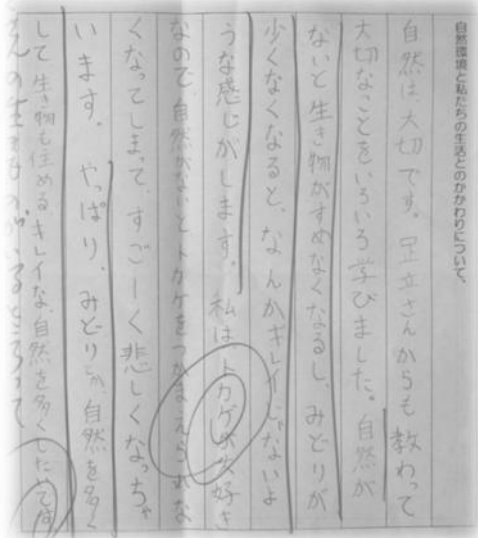 自然環境と私たちの生活とのかかわりについて、
自然は、大切です。足立さんからも教わって
大切なことをいろいろ学びました。自然が
ないと生き物がすめなくなるし、みどりが
少くなくなると、なんかキレイじゃないよ
うな感じがします。私はトカゲが大好き
なので、自然がないとトカゲをつかまえられな
くなってしまって、すごーく悲しくなっちゃ
います。やっぱり、みどりとか、自然を多く
して生き物も住める、キレイな、自然を多くしたいです